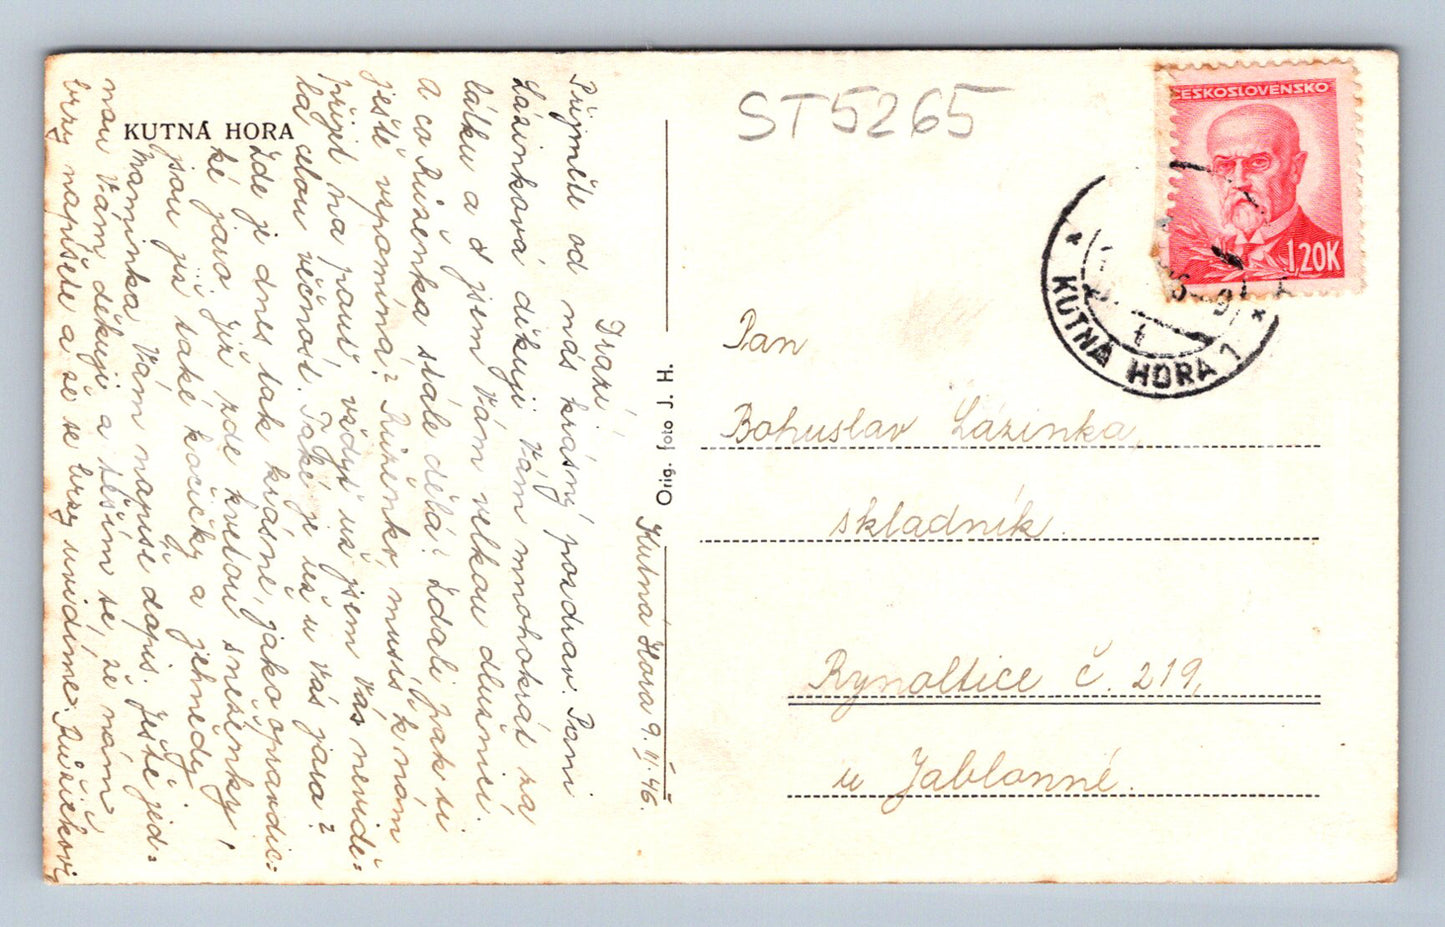 KUTNÁ HORA
Kutná Hora 9.III.46.
Drazí
Přijměte od nás krásný pozdrav. Paní
Lázinková děkuji Vám mnohokrát za
látku a jsem Vám velkou dlužnicí.
a co Růženka stále dělá? Zdali pak si
ještě vzpomíná? Růženko, musíš k nám
přijet na pouť, vždyť už jsem Vás nevidě=
la celou věčnost. Také je už u Vás jaro?
Zde je dnes tak krásně, jako opravdic=
ké jaro. Již zde kvetou sněženky,
jsou již také kočičky a jehnedy
Maminka Vám napíše dopis. Ještě jed=
nou Vám děkuji a těším se, že nám
brzy napíšete a že se brzy uvidíme. Růžičkovi
Orig. foto J. H.
ST5265
ČESKOSLOVENSKO
1,20K
KUTNÁ HORA 1
Pan
Bohuslav Lázinka,
skladník.
Rynoltice č. 219,
u Jablonné.